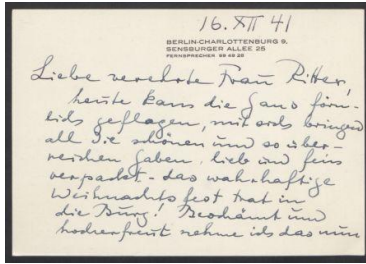 16. XII 41
BERLIN-CHARLOTTENBURG 9,
SENSBURGER ALLEE 26
FERNSPRECHER
Liebe verehrte Frau Ritter,
heute kam die Gans förm-
lich geflogen, mit sich bringend
all die schönen und so über-
reichen Gaben, lieb und fein
verpackt - das wahrhaftige
Weihnachtsfest trat in
die Burg! Beschämt und
hocherfreut nehme ich das nun